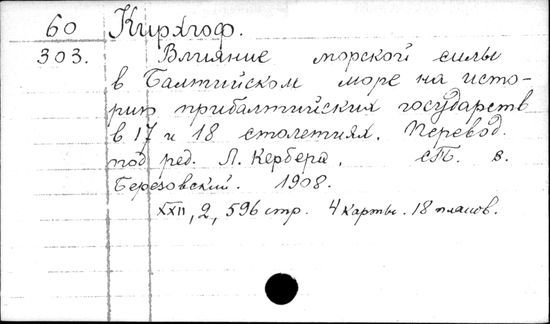 60 Кирхгоф.
303. Влияние морской силы
в Балтийском море на исто-
рию прибалтийских государств
в 17 и 18 столетиях. Перевод
под ред. Л. Кербера, СПб. В.
Березовский. 1908.
XXII, 2, 596 стр. 4 карты. 18 планов.